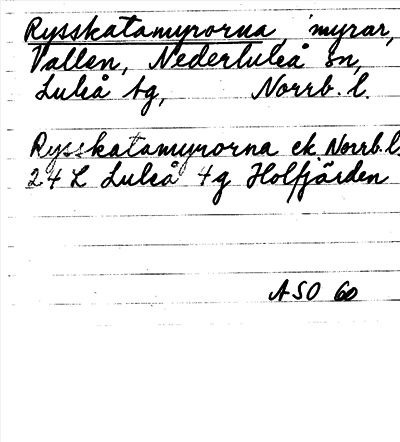 Rysskatamyrorna, myrar,
Vallen, Nederluleå sn,
Luleå tg, Norrb. l.
Rysskatamyrorna ek Norrb.l.
24 L Luleå 4g Holfjärden
ASO 60